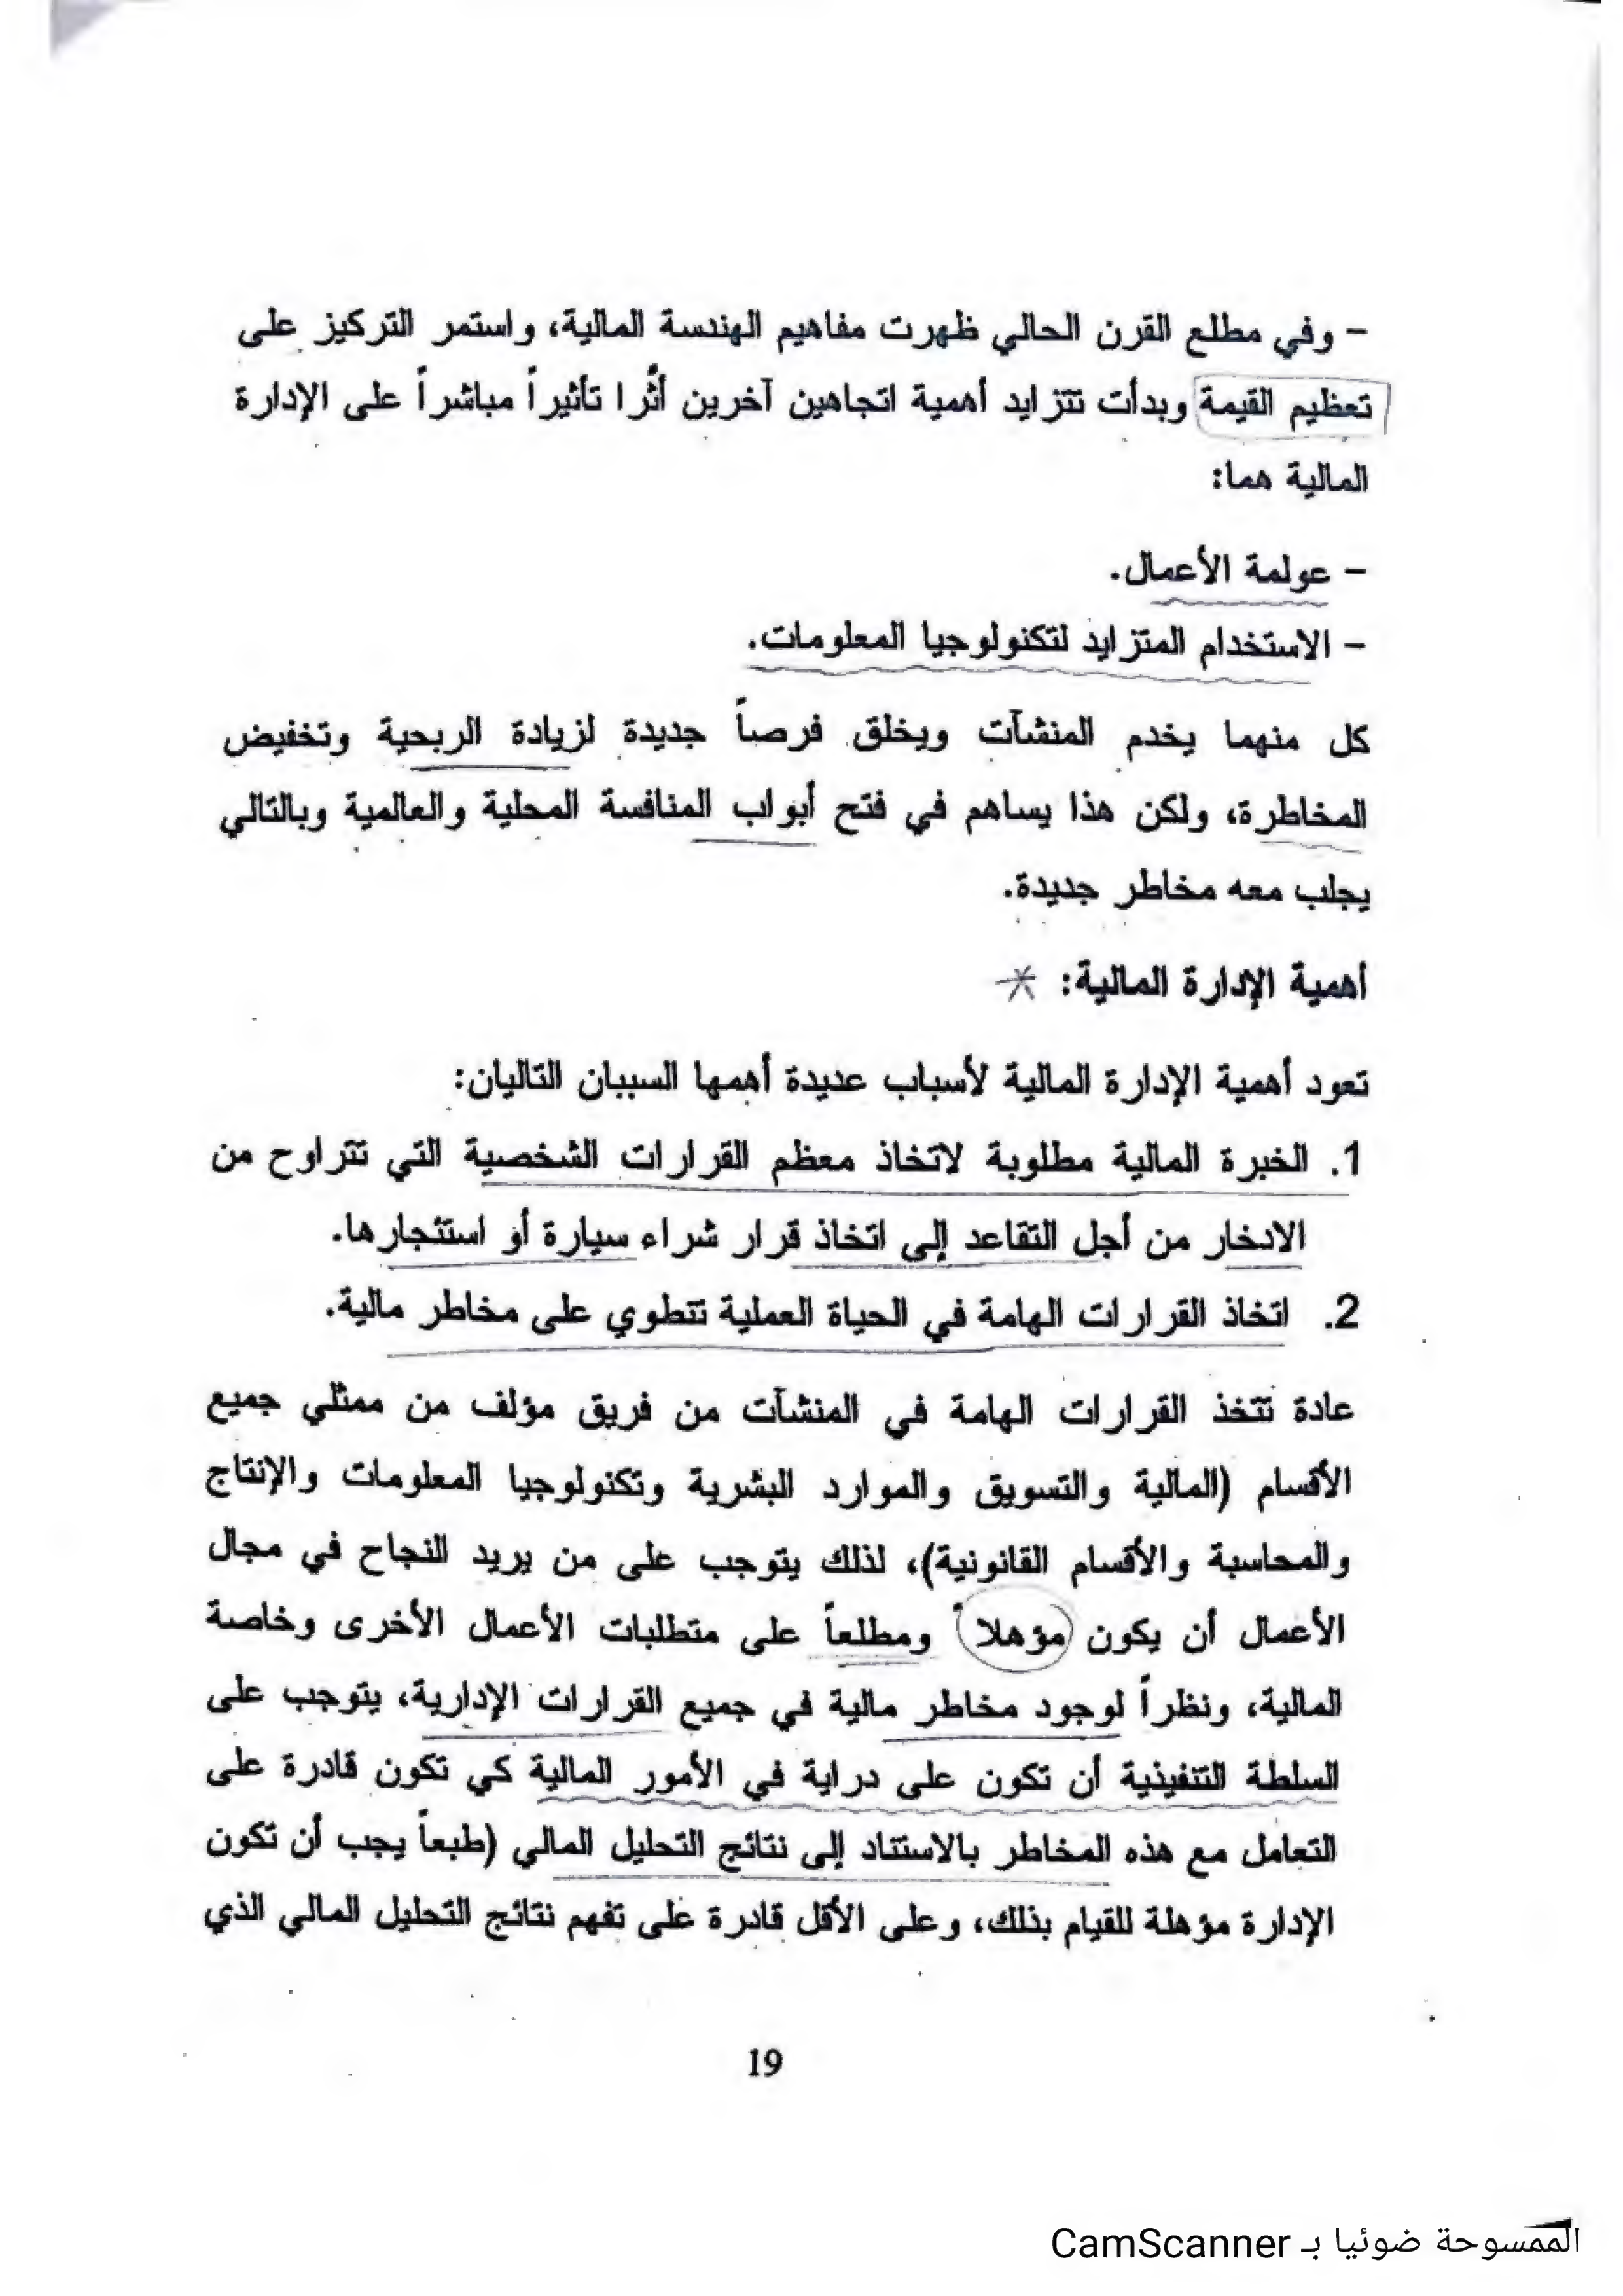 - وفي مطلع القرن الحالي ظهرت مفاهيم الهندسة المالية، واستمر التركيز على
تعظيم القيمة وبدأت تتزايد أهمية اتجاهين آخرين أثَّرا تأثيراً مباشراً على الإدارة
المالية هما:
- عولمة الأعمال.
- الاستخدام المتزايد لتكنولوجيا المعلومات.
كل منهما يخدم المنشآت ويخلق فرصاً جديدة لزيادة الربحية وتخفيض
المخاطرة، ولكن هذا يساهم في فتح أبواب المنافسة المحلية والعالمية وبالتالي
يجلب معه مخاطر جديدة.
أهمية الإدارة المالية: *
تعود أهمية الإدارة المالية لأسباب عديدة أهمها السببان التاليان:
1. الخبرة المالية مطلوبة لاتخاذ معظم القرارات الشخصية التي تتراوح من
الادخار من أجل التقاعد إلى اتخاذ قرار شراء سيارة أو استئجارها.
2. اتخاذ القرارات الهامة في الحياة العملية تنطوي على مخاطر مالية.
عادة تتخذ القرارات الهامة في المنشآت من فريق مؤلف من ممثلي جميع
الأقسام (المالية والتسويق والموارد البشرية وتكنولوجيا المعلومات والإنتاج
والمحاسبة والأقسام القانونية)، لذلك يتوجب على من يريد النجاح في مجال
الأعمال أن يكون مؤهلاً ومطلعاً على متطلبات الأعمال الأخرى وخاصة
المالية، ونظراً لوجود مخاطر مالية في جميع القرارات الإدارية، يتوجب على
السلطة التنفيذية أن تكون على دراية في الأمور المالية كي تكون قادرة على
التعامل مع هذه المخاطر بالاستناد إلى نتائج التحليل المالي (طبعاً يجب أن تكون
الإدارة مؤهلة للقيام بذلك، وعلى الأقل قادرة على تفهم نتائج التحليل المالي الذي
19
الممسوحة ضوئيا بـ CamScanner